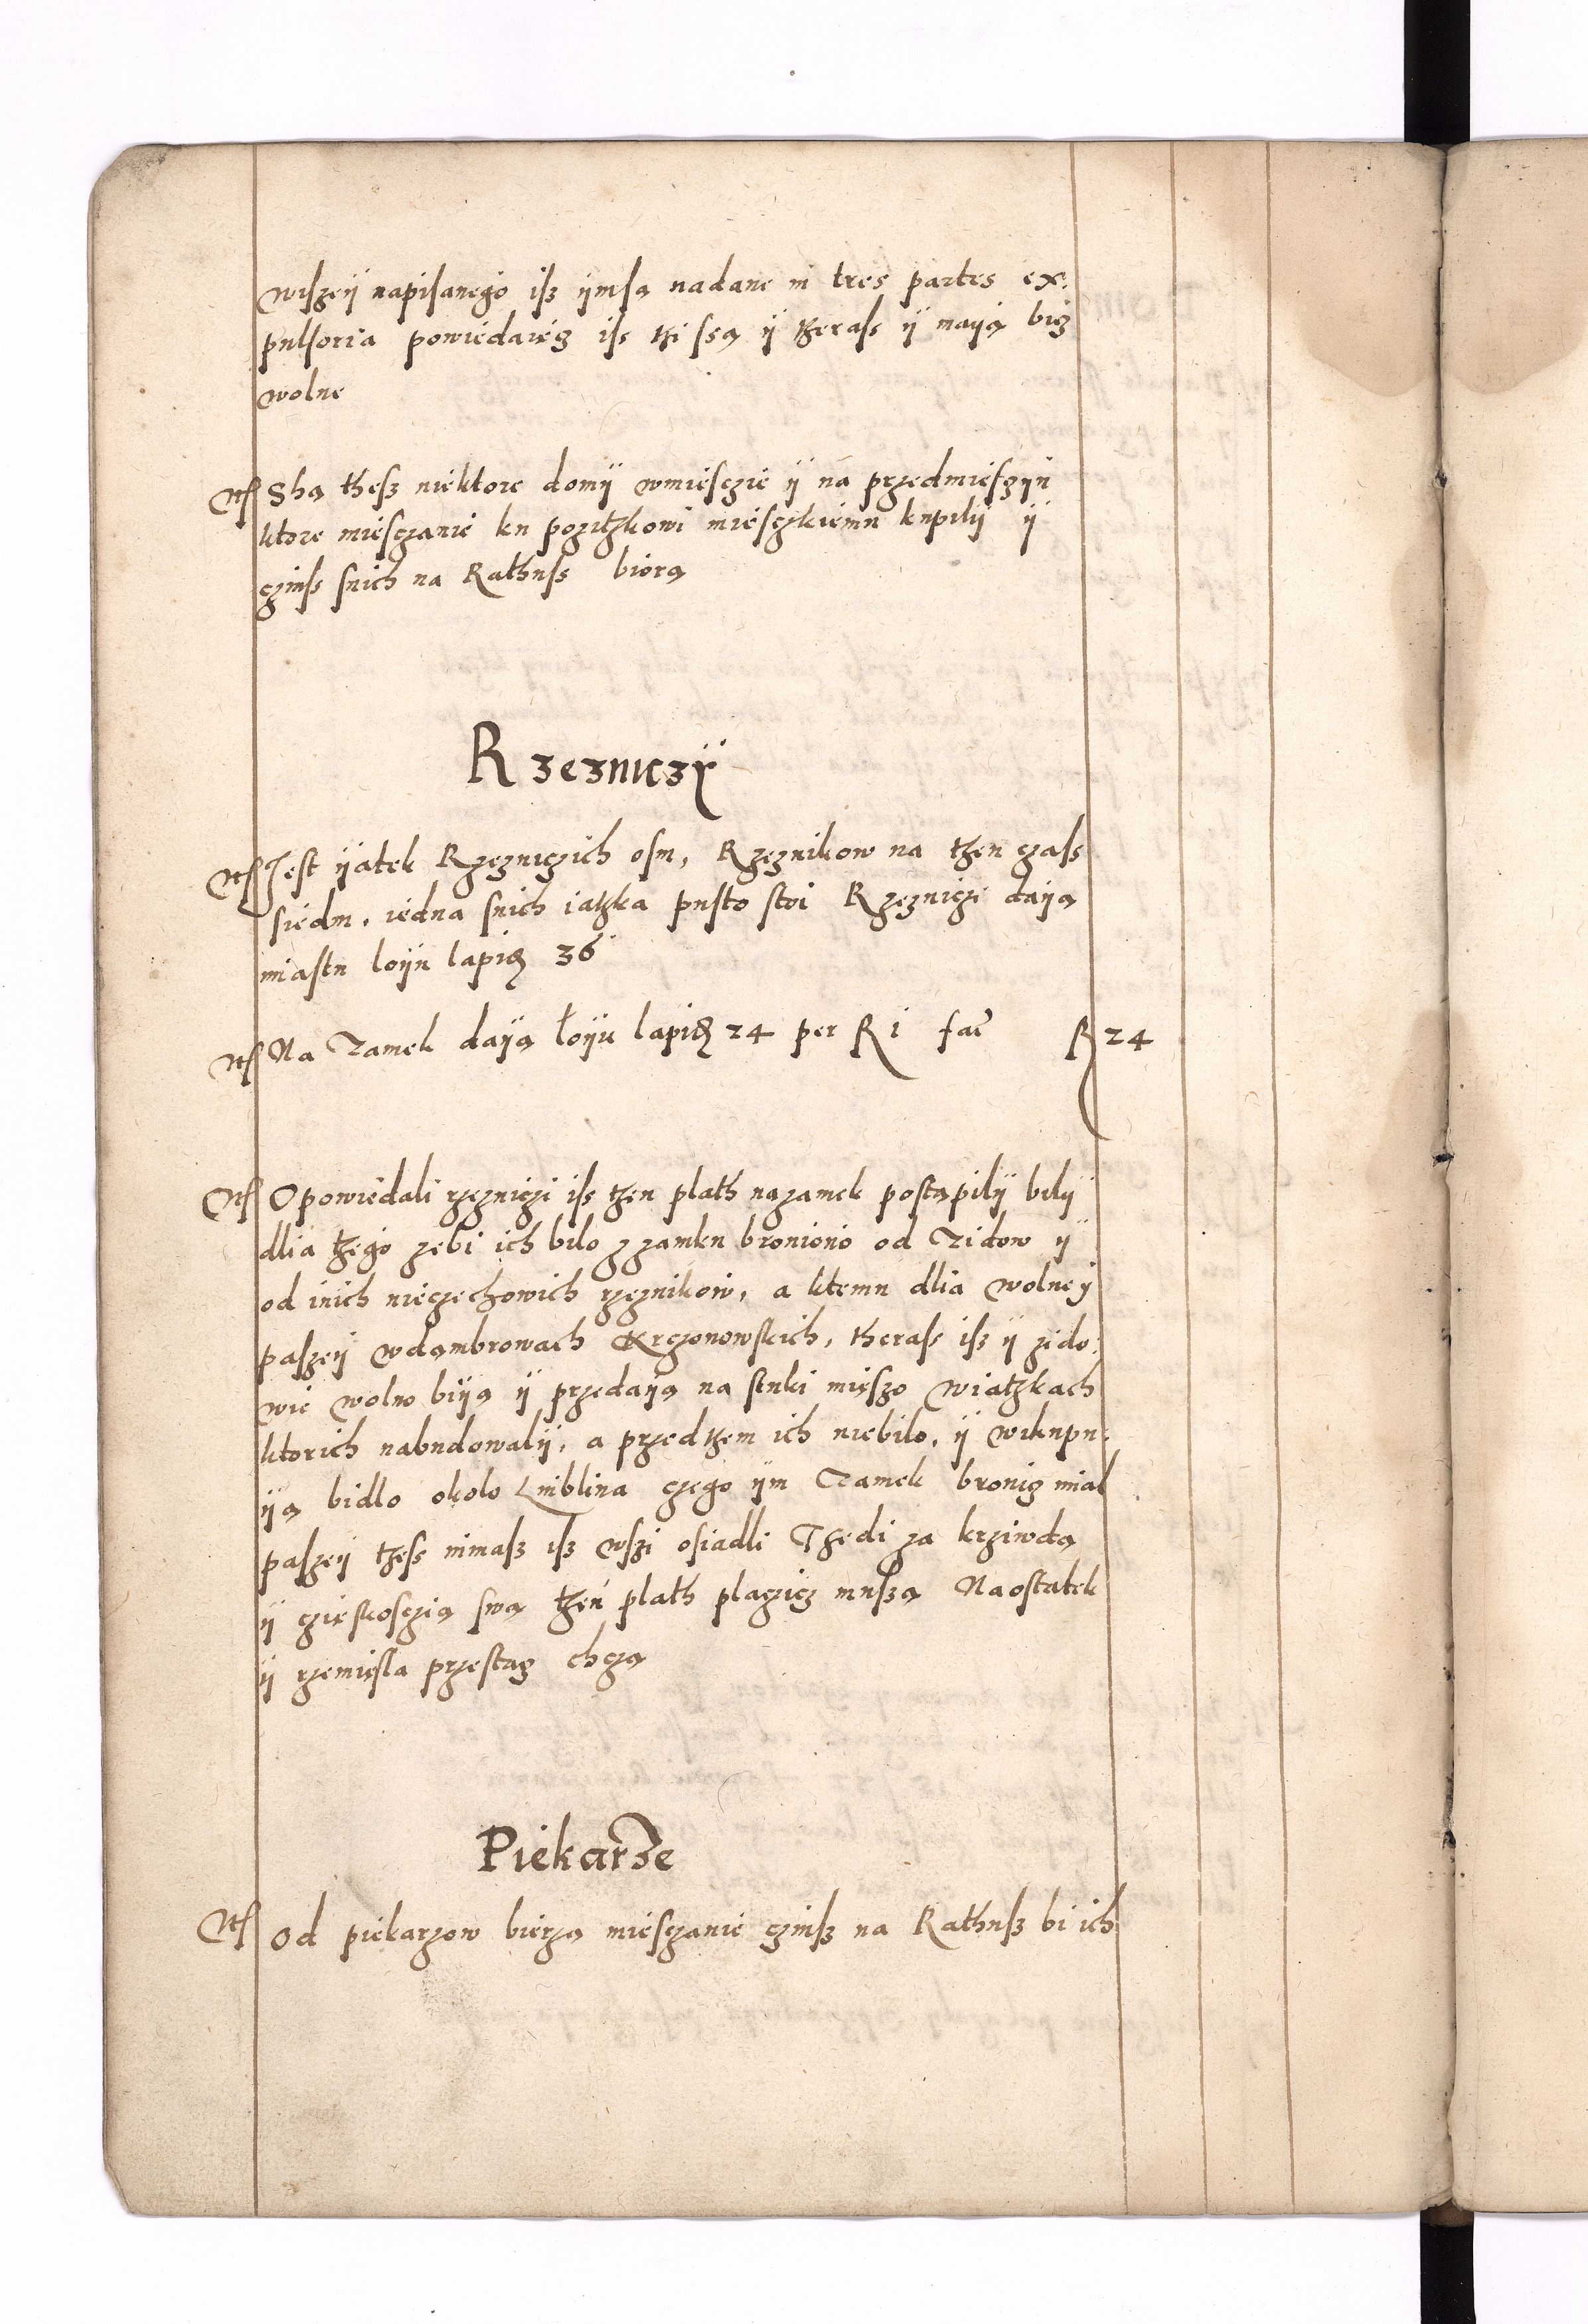 wiszeÿ napisanego isz ÿmsą nadane in tres partes ex:
pulsoria powiedaięcz iss tzi ssą ÿ tzerass ÿ maÿą bicz
wolne
Sthą thesz niektore domÿ wmiesczie ÿ na przedmiesczÿu
ktore miesczanie ku pozitzkowi miesczkiemu kupilÿ ÿ
czinss snich na Rathuss biorą
Rzezniczÿ
Jest ÿatek Rzezniczich osm, Rzeznikow na tzen czass
siedm, iedna snich iatzka pusto stoi Rzezniczi daÿą
miastu loÿu lapicz 36
Na Zamek daÿą łoÿu lapicz 24 per R 1 fac̃ R 24
Opowiedali rzezniczi iss tzen plath nazamek postąpilÿ bilÿ
dlia tzego zebi ich bilo zzamku broniono od Zidow ÿ
od inich nieczechowich rzeznikow, a ktemu dlia wolneÿ
paszeÿ wdąmbrowach Krczonowskich, therass isz ÿ zido:
wie wolno biÿą ÿ przedaÿą na stuki mięszo wiatzkach
ktorich nabudowalÿ, a przedtzem ich niebilo, ÿ wikupu:
ÿą bidlo okolo Lublina czego ÿm Zamek bronicz mial
paszeÿ tzess nimasz isz wszi osiadli Thedi za krziwdą
ÿ czięskosczią swą tzen plath placzicz muszą Naostatek
ÿ rzemięsla przestacz chczą
Piekarze
Od piekarzow bierzą miesczanie czinsz na Rathusz bi ich